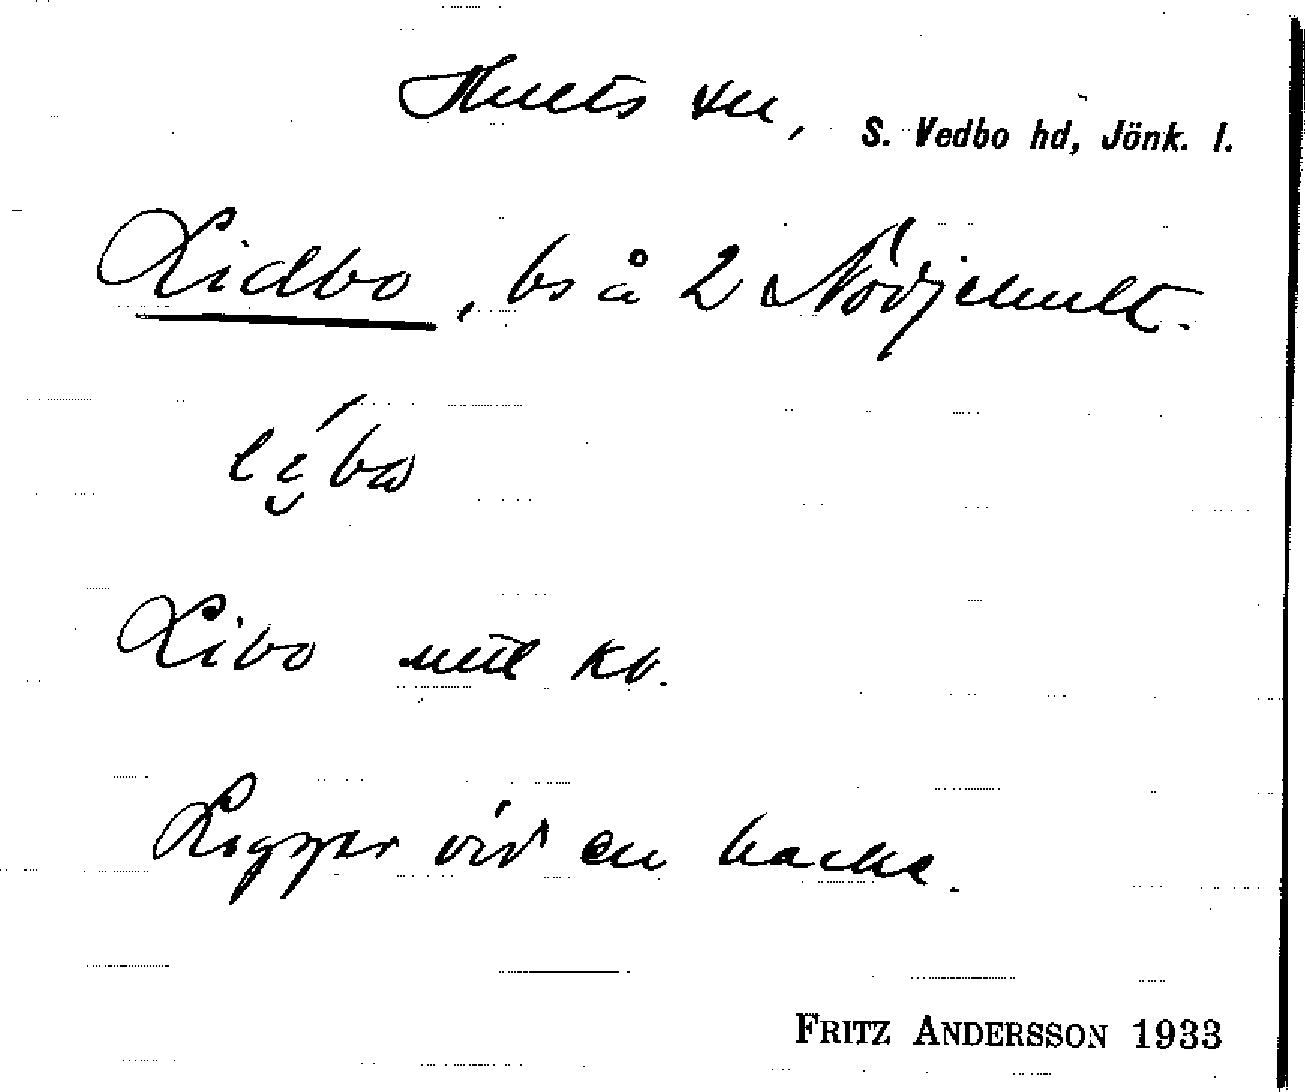 Hults sn, S. Vedbo hd, Jönk. l.
Lidbo, bs å 2 Növjehult.
Libo utt kb.
Ligger vid en backe.
FRITZ ANDERSSON 1933